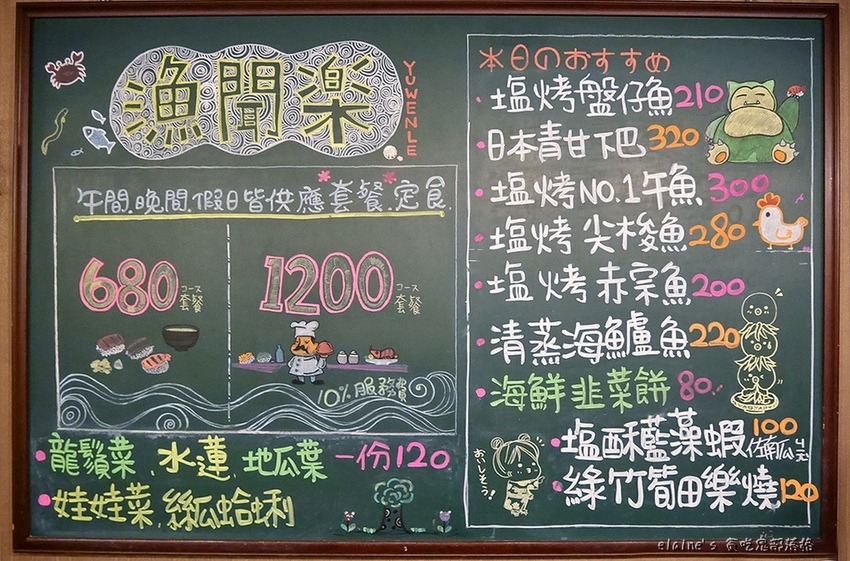 漁聞楽
YUWENLE
午間.晚間.假日皆供應"套餐".定食.
680 コース 套餐
1200 コース 套餐
10%服務費
龍鬚菜、水蓮、地瓜葉 一份120
娃娃菜、絲瓜蛤蜊
本日のおすすめ
塩烤盤仔魚210
日本青甘下巴320
塩烤NO.1午魚300
塩烤尖梭魚280
塩烤赤宗魚200
清蒸海鱸魚220
海鮮韭菜餅80.
塩酥藍藻蝦100
綠竹筍田樂燒120
おいしそう!
elaine's 貪吃鬼部落格